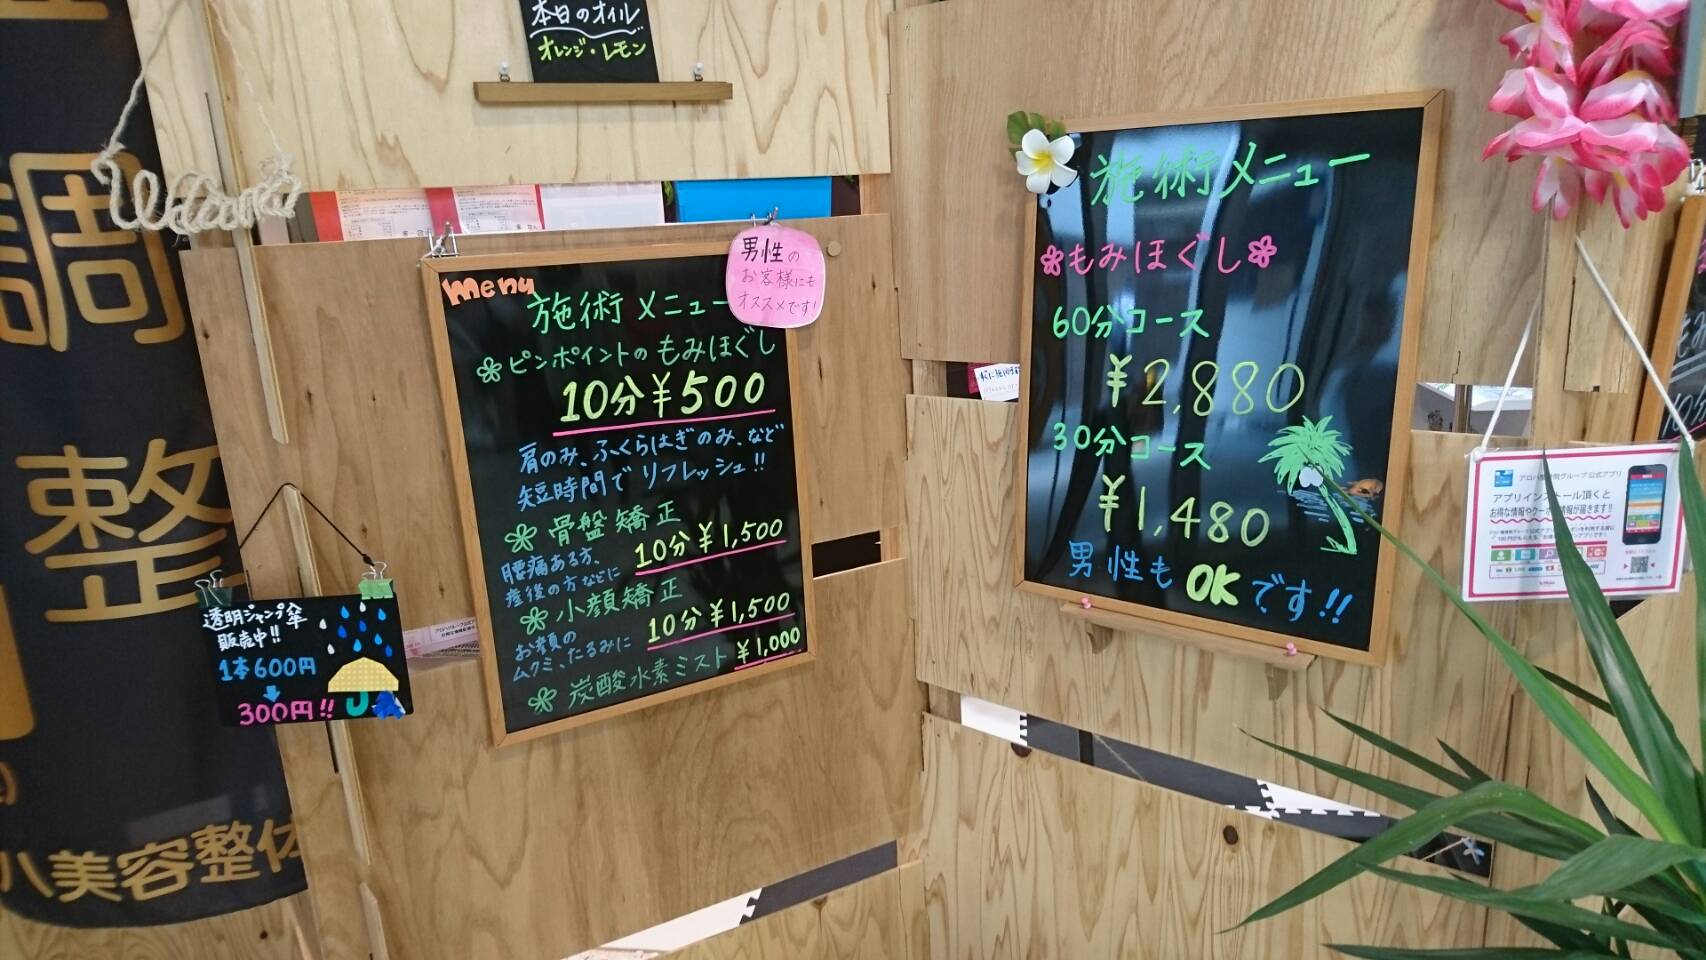 本日のオイル
オレンジ・レモン
調
整
ハ美容整体
透明ジャンプ傘
販売中!!
1本600円
300円!!
menu
施術メニュー
男性の
お客様にも
オススメです!
ピンポイントのもみほぐし
10分¥500
肩のみ、ふくらはぎのみ、など
短時間でリフレッシュ!!
骨盤矯正
10分¥1,500
腰痛ある方、
産後の方などに
小顔矯正
10分¥1,500
お顔の
ムクミ、たるみに
炭酸水素ミスト ¥1,000
施術メニュー
もみほぐし
60分コース
¥2,880
30分コース
¥1,480
男性もOKです!!
アプリインストール頂くと